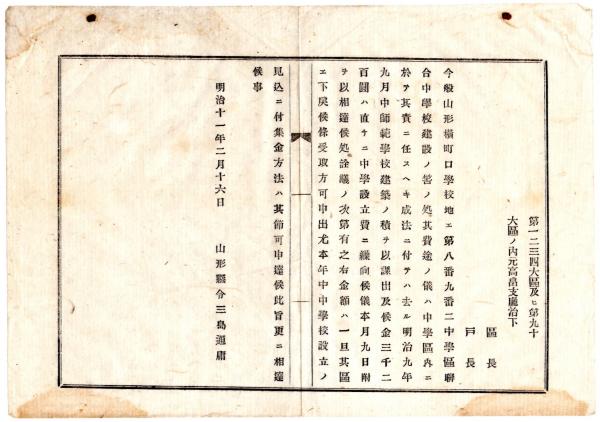 第一二三四大區及ヒ第九十
大區ノ内元高畠支廳治下
區長
戸長
今般山形橫町口學校地エ第八番九番二中學區聯
合中學校建設ノ筈ノ処其費途ノ儀ハ中學區內ニ
於テ其責ニ任スヘキ成法ニ付テハ去ル明治九年
九月中師範學校建築ノ積ヲ以課出及候金三千二
百圓ハ直サニ中學設立費ニ繰向候儀本月九日附
ヲ以相達候処詮議ノ次第有之右金額ハ一旦其區
エ下戾候條受取方可申出尤本年中中學校設立ノ
見込ニ付集金方法ハ其節可申達候此旨更ニ相達
候事
明治十一年二月十六日
山形縣令三島通庸